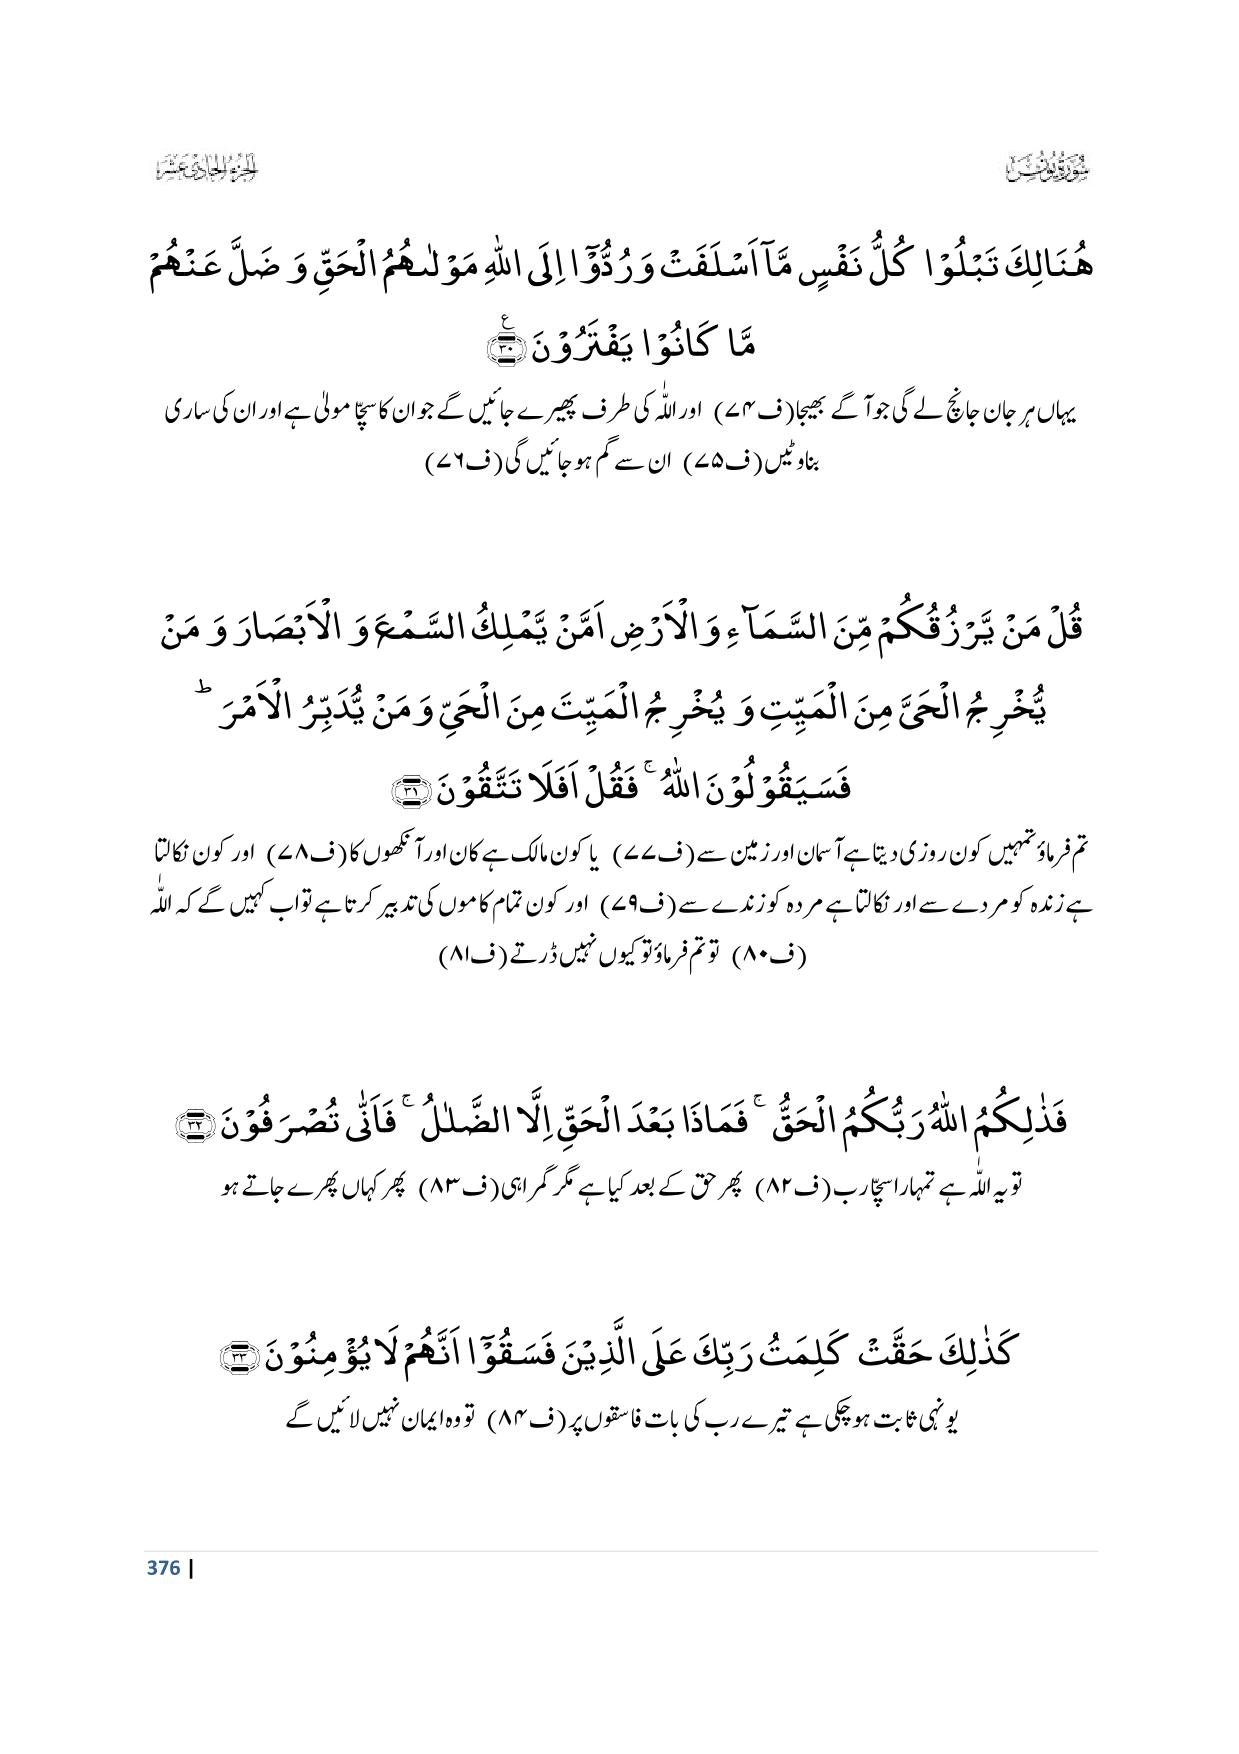 سورة يونس
الجزء الحادي عشر
هُنَالِكَ تَبْلُوْا كُلُّ نَفْسٍ مَّاۤ اَسْلَفَتْ وَ رُدُّوْۤا اِلَى اللّٰهِ مَوْلٰىهُمُ الْحَقِّ وَ ضَلَّ عَنْهُمْ
مَّا كَانُوْا يَفْتَرُوْنَ ﴿۳۰﴾ ع
یہاں ہر جان جانچ لے گی جو آگے بھیجا (ف۷۴) اور اللّٰہ کی طرف پھیرے جائیں گے جو ان کا سچّا مولٰی ہے اور ان کی ساری
بناوٹیں (ف۷۵) ان سے گم ہوجائیں گی (ف۷۶)
قُلْ مَنْ یَّرْزُقُكُمْ مِّنَ السَّمَآءِ وَ الْاَرْضِ اَمَّنْ یَّمْلِكُ السَّمْعَ وَ الْاَبْصَارَ وَ مَنْ
یُّخْرِجُ الْحَیَّ مِنَ الْمَیِّتِ وَ یُخْرِجُ الْمَیِّتَ مِنَ الْحَیِّ وَ مَنْ یُّدَبِّرُ الْاَمْرَ ؕ
فَسَیَقُوْلُوْنَ اللّٰهُ ۚ فَقُلْ اَفَلَا تَتَّقُوْنَ ﴿۳۱﴾
تم فرماؤ تمہیں کون روزی دیتا ہے آسمان اور زمین سے (ف۷۷) یا کون مالک ہے کان اور آنکھوں کا (ف۷۸) اور کون نکالتا
ہے زندہ کو مردے سے اور نکالتا ہے مردہ کو زندے سے (ف۷۹) اور کون تمام کاموں کی تدبیر کرتا ہے تو اب کہیں گے کہ اللّٰہ
(ف۸۰) تو تم فرماؤ تو کیوں نہیں ڈرتے (ف۸۱)
فَذٰلِكُمُ اللّٰهُ رَبُّكُمُ الْحَقُّ ۚ فَمَاذَا بَعْدَ الْحَقِّ اِلَّا الضَّلٰلُ ۚ فَاَنّٰى تُصْرَفُوْنَ ﴿۳۲﴾
تو یہ اللّٰہ ہے تمہارا سچّا رب (ف۸۲) پھر حق کے بعد کیا ہے مگر گمراہی (ف۸۳) پھر کہاں پھرے جاتے ہو
كَذٰلِكَ حَقَّتْ كَلِمَتُ رَبِّكَ عَلَى الَّذِیْنَ فَسَقُوْۤا اَنَّهُمْ لَا یُؤْمِنُوْنَ ﴿۳۳﴾
یونہی ثابت ہوچکی ہے تیرے رب کی بات فاسقوں پر (ف۸۴) تو وہ ایمان نہیں لائیں گے
376 |